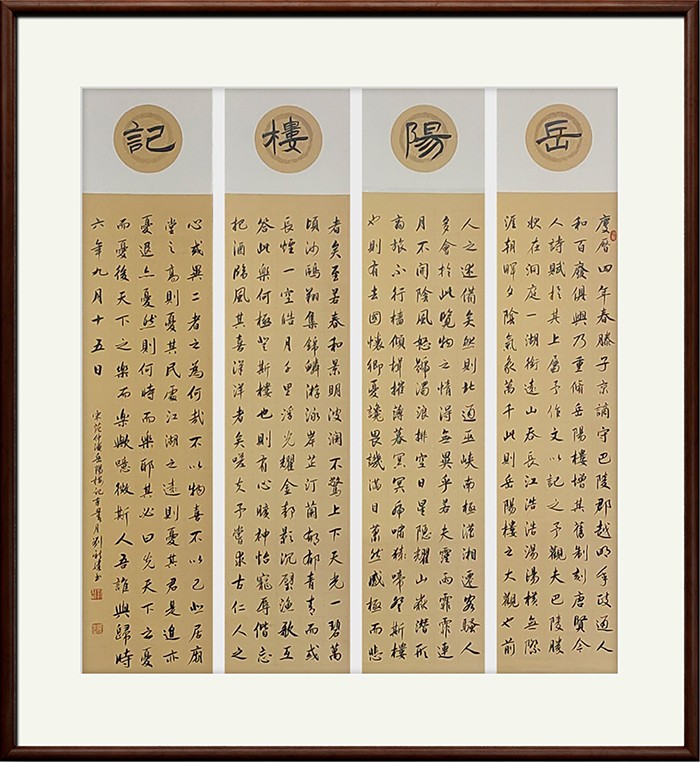 岳陽樓記
慶曆四年春滕子京謫守巴陵郡越明年政通人
和百廢俱興乃重脩岳陽樓增其舊制刻唐賢今
人詩賦於其上屬予作文以記之予觀夫巴陵勝
狀在洞庭一湖銜遠山吞長江浩浩湯湯橫無際
涯朝暉夕陰氣象萬千此則岳陽樓之大觀也前
人之述備矣然則北通巫峽南極瀟湘遷客騷人
多會於此覽物之情得無異乎若夫霪雨霏霏連
月不開陰風怒號濁浪排空日星隱耀山嶽潛形
商旅不行檣傾楫摧薄暮冥冥虎嘯猿啼登斯樓
也則有去國懷鄉憂讒畏譏滿目蕭然感極而悲
者矣至若春和景明波瀾不驚上下天光一碧萬
頃沙鷗翔集錦鱗游泳岸芷汀蘭郁郁青青而或
長煙一空皓月千里浮光耀金靜影沉璧漁歌互
答此樂何極登斯樓也則有心曠神怡寵辱偕忘
把酒臨風其喜洋洋者矣嗟夫予嘗求古仁人之
心或異二者之為何哉不以物喜不以己悲居廟
堂之高則憂其民處江湖之遠則憂其君是進亦
憂退亦憂然則何時而樂耶其必曰先天下之憂
而憂後天下之樂而樂歟噫微斯人吾誰與歸時
六年九月十五日
宋范仲淹岳陽樓記